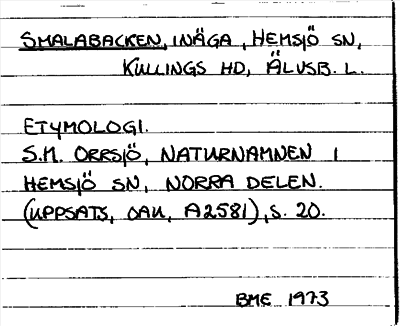 SMALABACKEN, INÄGA, HEMSJÖ SN,
KULLINGS HD, ÄLVSB. L.
ETYMOLOGI.
S.M. ORRSJÖ, NATURNAMNEN I
HEMSJÖ SN, NORRA DELEN.
(UPPSATS, OAU, A2581), S. 20.
BME 1973